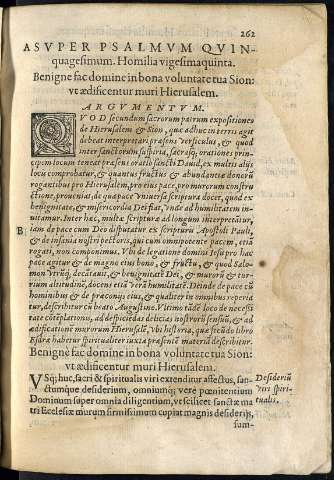 262
A SVPER PSALMVM QVIN-
quagesimum. Homilia vigesimaquinta.
Benigne fac domine in bona voluntate tua Sion:
vt ædificentur muri Hierusalem.
ARGVMENTVM.
QVOD secundum sacrorum patrum expositiones
de Hierusalem & Sion, quæ adhuc in terris agit
debeat interpretari præsens versiculus, & quod
inter sanctorum suspiria, sacrasq; orationes prin-
cipem locum teneat præsens oratio sancti Dauid, ex multis alijs
locis comprobatur, & quantus fructus & abundantia donorũ
rogantibus pro Hierusalem, pro eius pace, pro murorum constru
ctione, proueniat, de quapace vniuersa scriptura docet, quod ex
benignitate, & misericordia Dei fiat, vnde ad humilitatem in-
uitamur. Inter hæc, multa scriptura ad longum interpretatur,
B
iam de pace cum Deo disputatur ex scripturis Apostoli Pauli,
& de insania nostri pectoris, qui cum omnipotente pacem, etiã
rogati, non componimus. Vbi de legatione domini Iesu pro hac
pace agitur & de magno eius bono, & fructu, & quod Salo-
mon vtrũq; decãtauit, & benignitatẽ Dei, & murorũ & tur-
rium altitudinẽ, docens etiã verã humilitatẽ. Deinde de pace cũ
hominibus & de præconijs eius, & qualiter in omnibus reperia
tur, describitur cũ beato Augustino. Vltimo tãdẽ loco de necessi
tate cõtẽplationis, ad despiciẽdas delicias nostrorũ sensuũ, & ad
ædificationẽ murorum Hierusalẽ, vbi historia, quæ secũdo libro
Esdræ habetur spiritualiter iuxta præsentẽ materiã describitur.
Benigne fac domine in bona voluntate tua Sion:
vt ædificentur muri Hierusalem.
VSq; huc, sacri & spiritualis viri extenditur affectus, san-
Desideriũ
ctumque desiderium, omniumq; vere pœnitentium
viri spiri-
Dominum super omnia diligentium, ve scilicet sanctæ ma
tualis.
tri Ecclesiæ murum firmissimum cupiat magnis desiderijs,
sum-